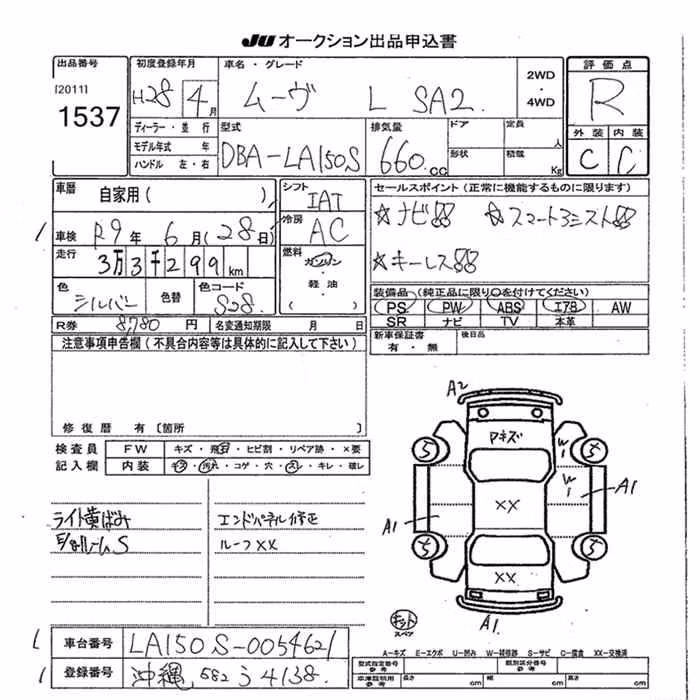 JU オークション出品申込書
出品番号
[2011]
1537
初度登録年月
H28 4月
車名・グレード
ムーヴ L SA2.
2WD
・
4WD
評価点
R
外装 内装
C C
ディーラー・並行
モデル年式 年
ハンドル 左・右
型式
DBA-LA150S
排気量
660.cc
ドア
形状
定員 人
積載 Kg
車歴 自家用( )
車検 R9年 6月(28日)
走行 3万3千299km
色 シルバー
色替
色コード S28.
シフト IAT
冷房 AC
燃料
ガソリン
・
軽油
・
( )
セールスポイント(正常に機能するものに限ります)
☆ナビ ☆スマートアシスト
☆キーレス
装備品(純正品に限り○を付けてください)
PS PW ABS エアB AW
SR ナビ TV 本革
R券 8,780円
名変通知期限 月 日
新車保証書 有・無
後日品
注意事項申告欄(不具合内容等は具体的に記入して下さい)
修復歴 有〔箇所 〕
検査員
記入欄
FW キズ・飛石・ヒビ割・リペア跡・×要
内装 キズ・汚れ・コゲ・穴・スレ・キレ・破レ
ライト黄ばみ
ルームS
エンドパネル修正
ルーフXX
A2
アキズ
5 5
W1
W1
XX
A1
A1
5 5
XX
A1
キット
スペア
A-キズ E-エクボ U-凹み W-補修跡 S-サビ C-腐食 XX-交換済
車台番号 LA150S-0054621
登録番号 沖縄 582 う 4138.
型式指定番号 参考
類別区分番号 参考
車庫証明用 参考
長さ cm
幅 cm
高さ cm